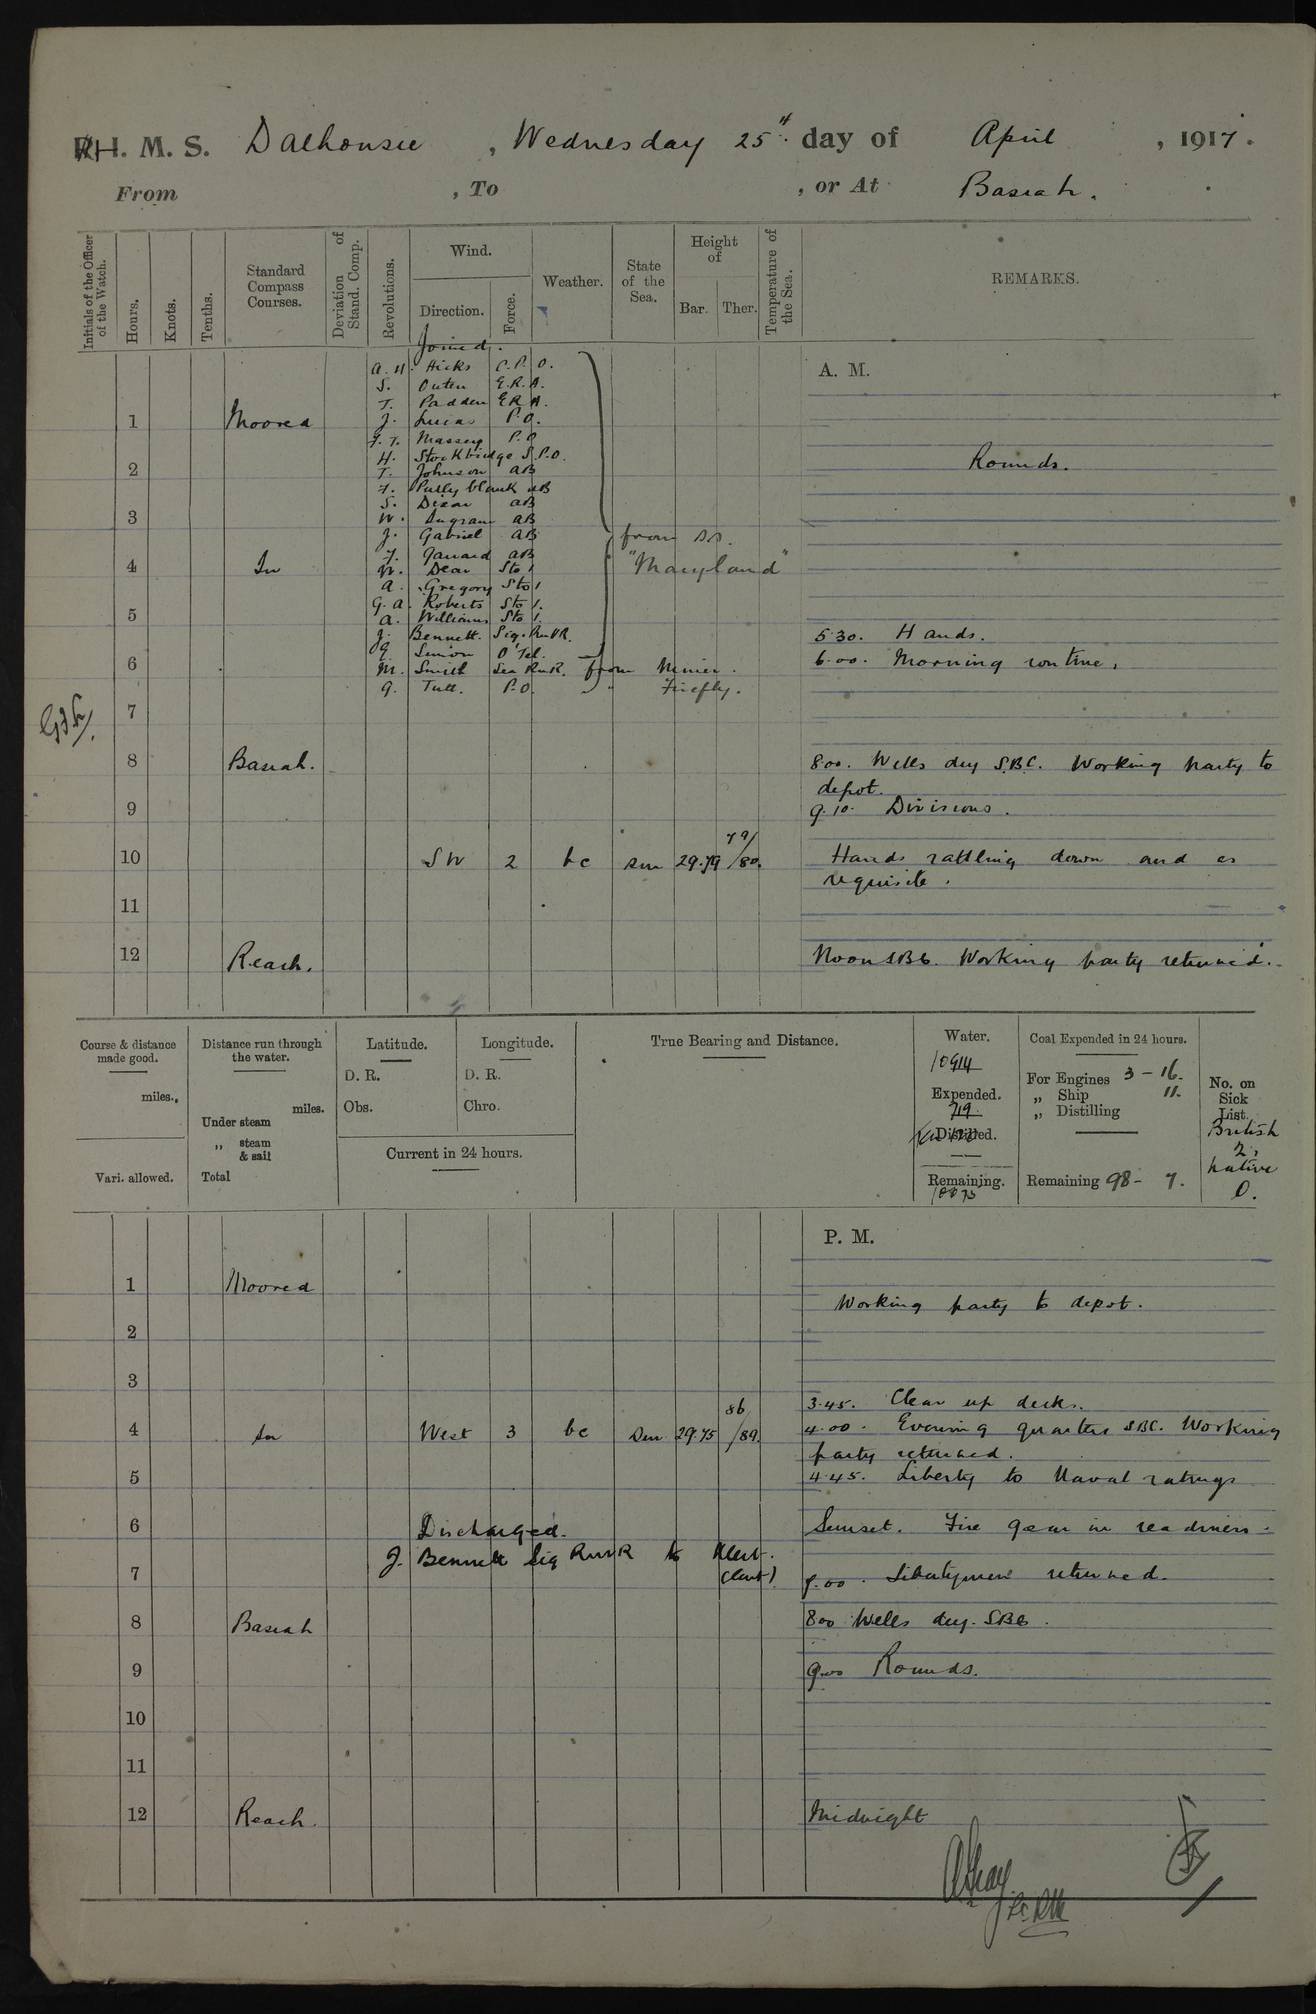 H. M. S. Dalhousie, Wednesday 25th day of April, 1917.
From , To , or At Basrah.
Initials of the Officer of the Watch.
Hours.
Knots.
Tenths.
Standard Compass Courses.
Deviation of Stand. Comp.
Revolutions.
Wind.
Direction.
Force.
Weather.
State of the Sea.
Height of
Bar. Ther.
Temperature of the Sea.
REMARKS.
Joined.
A. M.
A. H. Hicks C.P.O.
S. Outen E.R.A.
T. Padden E.R.A.
1 Moored J. Lucas P.O.
F. T. Massey P.O
H. Stockbridge S.P.O.
2 T. Johnson AB Rounds.
F. Pullyblank AB
S. Dixon AB
3 W. Ingram AB
J. Gabriel AB from S.S.
4 In F. Janard AB "Maryland"
W. Dear Sto 1
A. Gregory Sto 1
G. A. Roberts Sto 1.
5 A. Williams Sto 1.
J. Bennett. Sig. RNVR. 5.30. Hands.
G. Simon O'Tel.
6 M. Smith Sea RNR. from 6.00. Morning routine.
G. Tull. P.O. " Firefly.
7
8 Basrah. 8.00. Wells dry S.B.C. Working party to
depot.
9 9.10. Divisions.
10 SW 2 bc Sm 29.79 79/80. Hands rattling down and as
requisite.
11
12 Reach. Noon SBC. Working party returned.
Course & distance made good.
miles.
Vari. allowed.
Distance run through the water.
miles.
Under steam
„ steam & sail
Total
Latitude.
D. R.
Obs.
Longitude.
D. R.
Chro.
Current in 24 hours.
True Bearing and Distance.
Water.
10914
Expended.
719
Distilled.
Remaining.
Coal Expended in 24 hours.
For Engines 3 - 16.
„ Ship 11.
„ Distilling
Remaining 98 - 7.
No. on Sick List.
British
2.
Native
0.
P. M.
1 Moored
Working party to depot.
2
3
3.45. Clear up decks.
4 In West 3 bc Sm 29.75 86/89. 4.00. Evening quarters SBC. Working
party returned.
5 4.45. Liberty to Naval ratings
6 Discharged. Sunset. Fire gear in readiness.
J. Bennett Sig RNVR to Alert.
7 (Lent) Libertymen returned.
8 Basrah 8.00 Wells dry. SBC.
9 9.00 Rounds.
10
11
12 Reach. Midnight